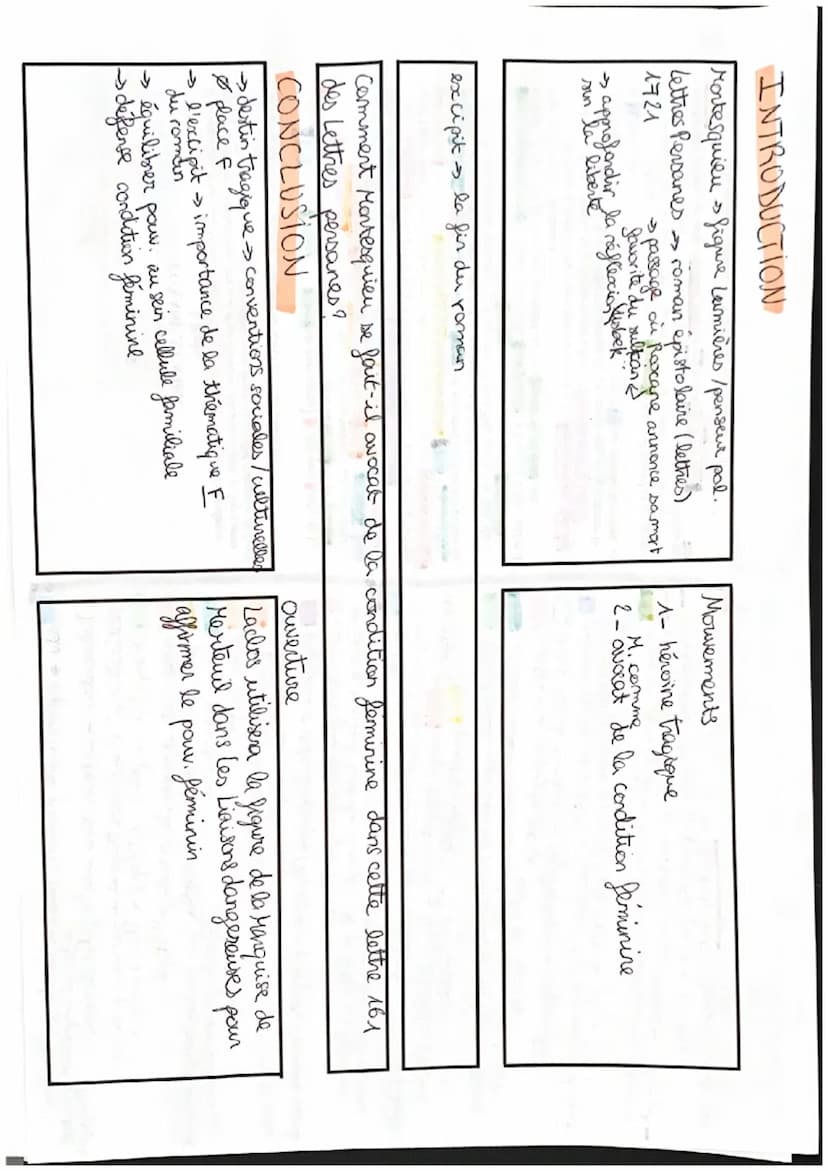 INTRODUCTION
Montesquieu → figure Lumières / penseur pol.
Lettres Persanes → roman épistolaire (lettres)
1721 → passage où Roxane annonce sa mort
favorite du sultan
→ approfondir la réflexion Usbek
sur la liberté
Mouvements
1- héroïne tragique
M. comme
2- avocat de la condition féminine
excipit → la fin du roman
Comment Montesquieu se fait-il avocat de la condition féminine dans cette lettre 161
des Lettres persanes?
CONCLUSION
→ destin tragique → conventions sociales / culturelles
place F
→ l'excipit → importance de la thématique F
du roman
→ équilibrer pouv. au sein cellule familiale
→ défense condition féminine
Ouverture
Laclos utilisera la figure de la Marquise de
Merteuil dans les Liaisons dangereuses pour
affirmer le pouv. féminin